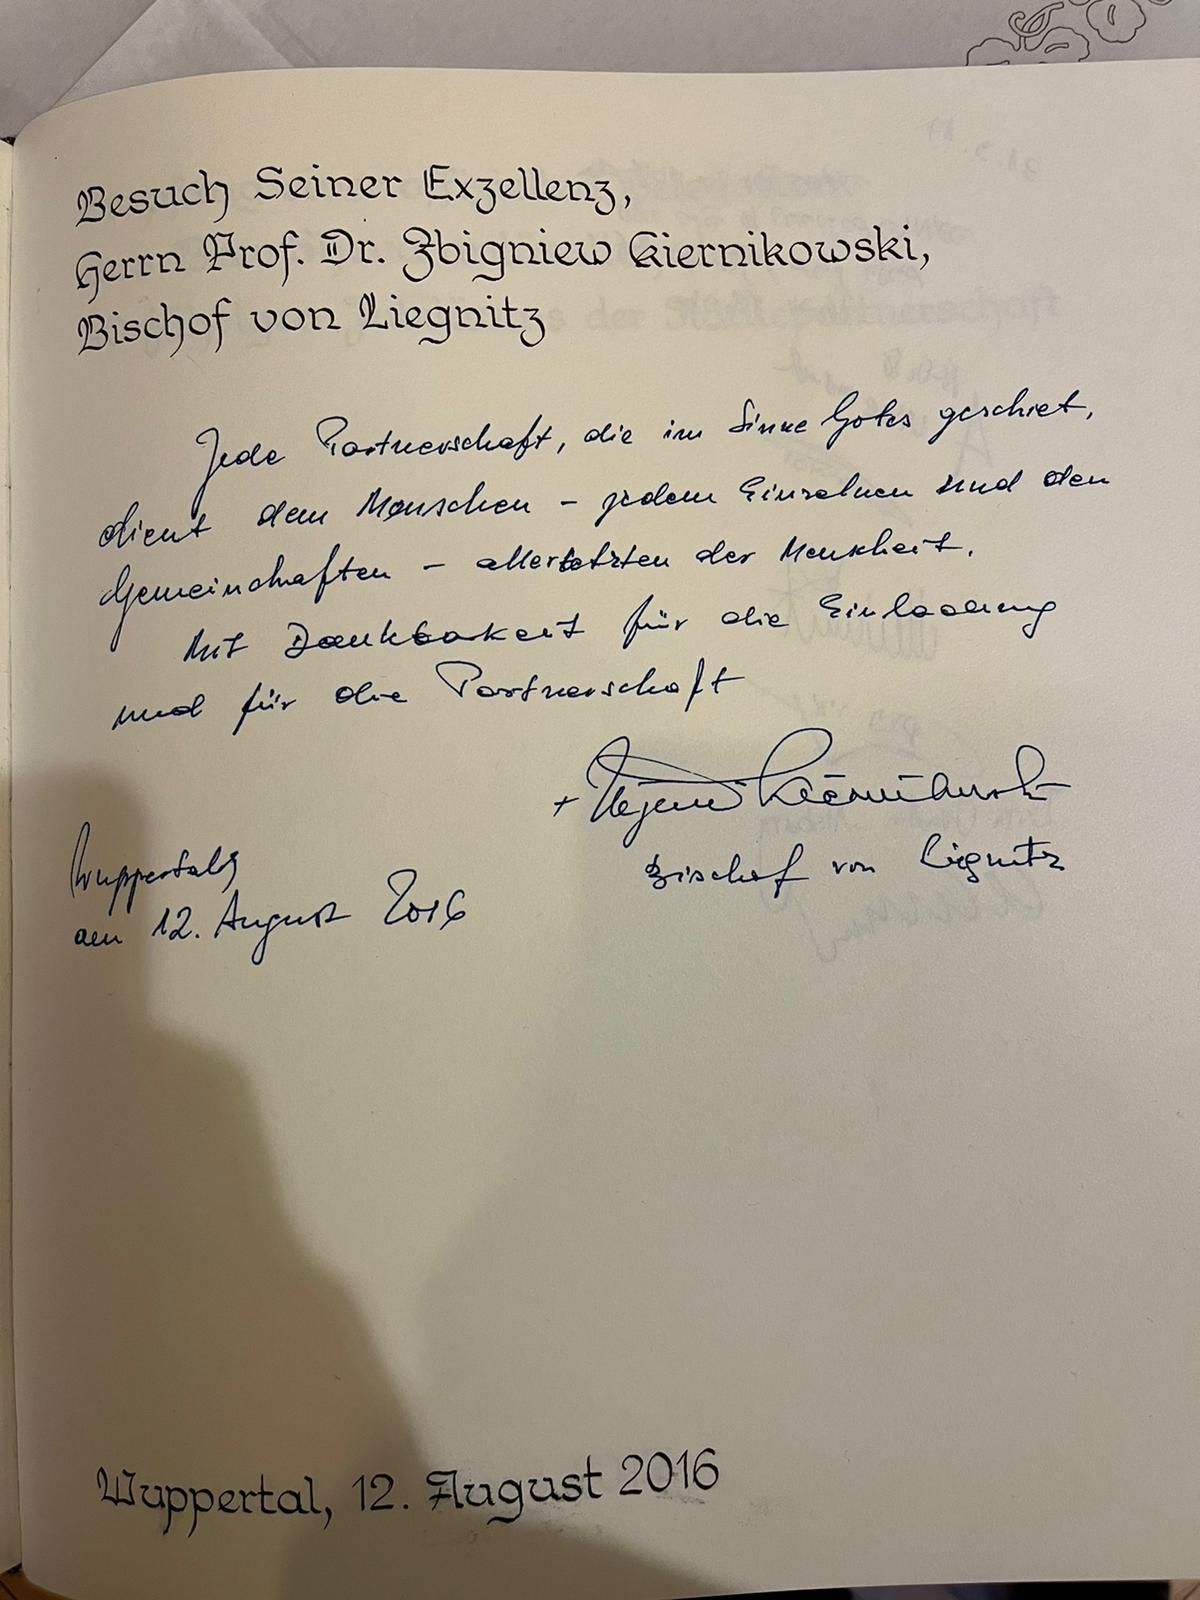 Besuch Seiner Exzellenz,
Herrn Prof. Dr. Zbigniew Kiernikowski,
Bischof von Liegnitz
Jede Partnerschaft, die im Sinne Gotes geschiet,
dient dem Menschen – jedem Einzelnen und den
Gemeinschaften – allerletzten der Menscheit.
Mit Dankbarkeit für die Einladung
und für die Partnerschaft
+ Kiernikowski
Bischof von Liegnitz
Wuppertal,
am 12. August 2016
Wuppertal, 12. August 2016